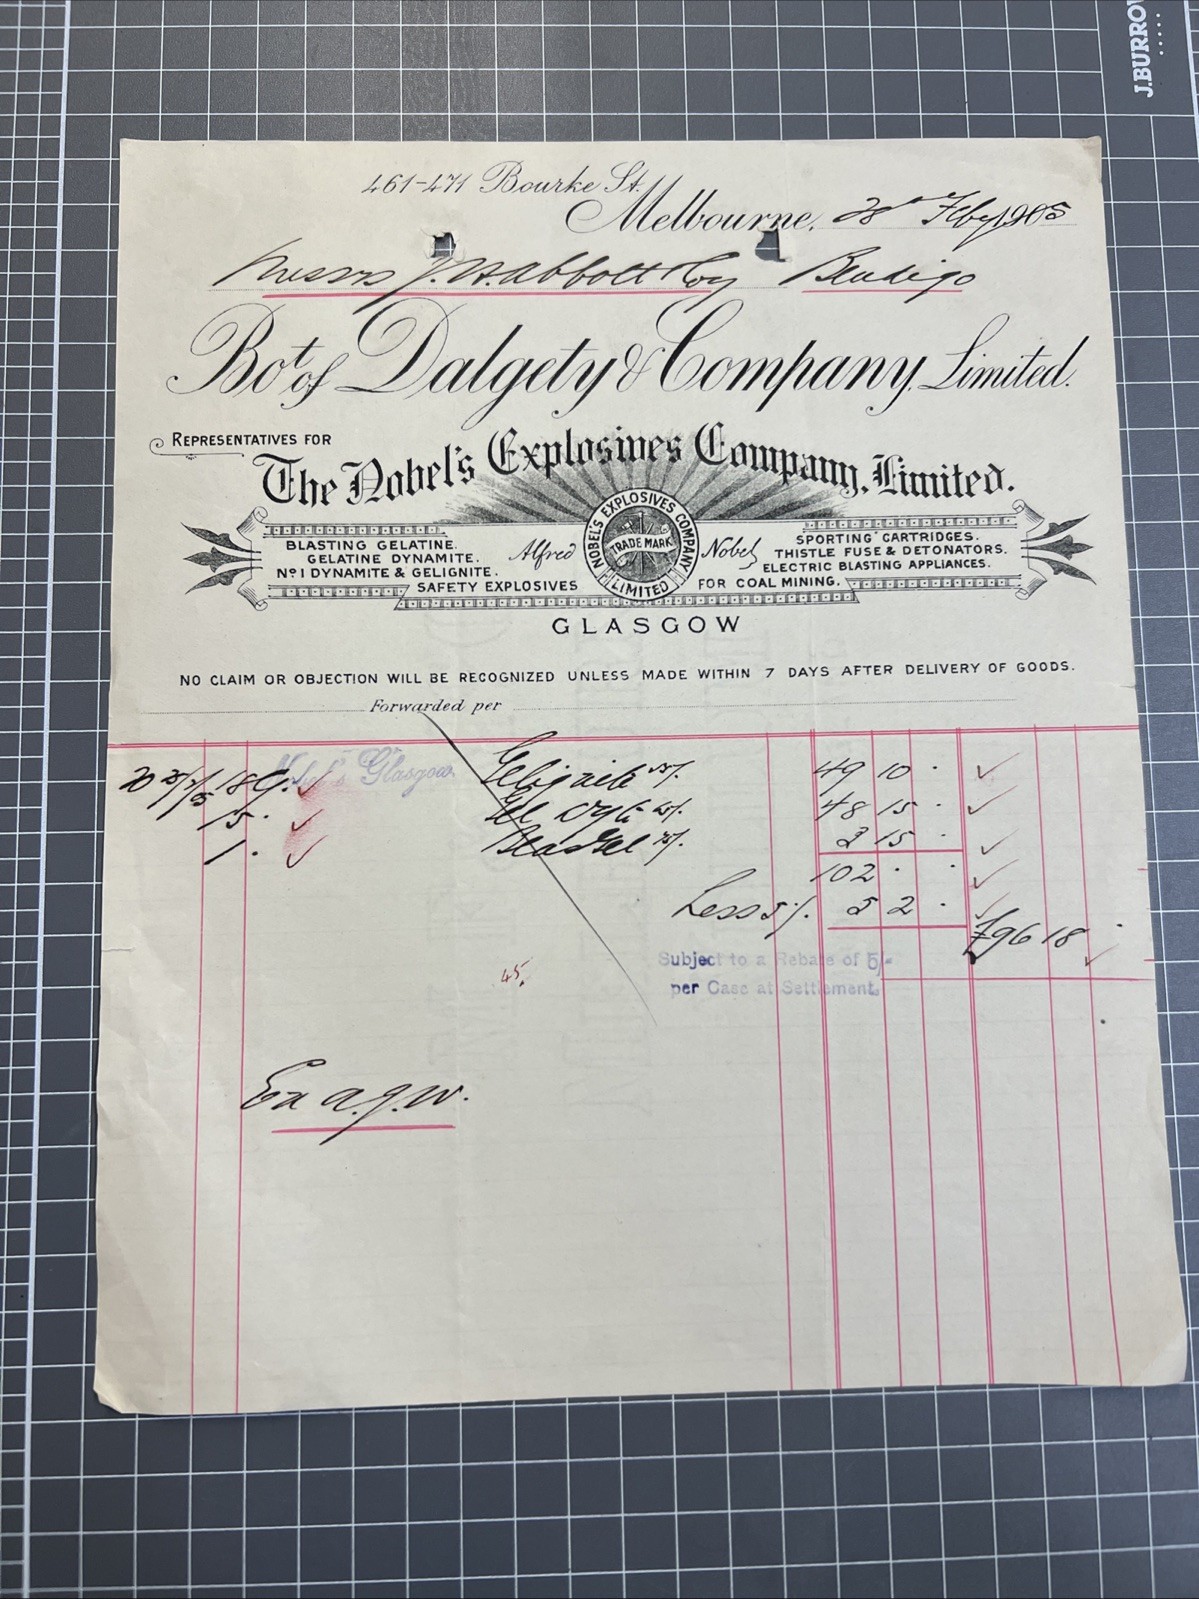 J.BURROW
461-471 Bourke St.
Melbourne, 28th Feby 1905
Messrs J. H. Abbott & Coy Bendigo
Bot of Dalgety & Company, Limited.
REPRESENTATIVES FOR
The Nobel's Explosives Company, Limited.
BLASTING GELATINE.
GELATINE DYNAMITE.
No 1 DYNAMITE & GELIGNITE.
SAFETY EXPLOSIVES
Alfred Nobel
NOBEL'S EXPLOSIVES COMPANY LIMITED
TRADE MARK
SPORTING CARTRIDGES.
THISTLE FUSE & DETONATORS.
ELECTRIC BLASTING APPLIANCES.
FOR COAL MINING.
GLASGOW
NO CLAIM OR OBJECTION WILL BE RECOGNIZED UNLESS MADE WITHIN 7 DAYS AFTER DELIVERY OF GOODS.
Forwarded per
18 Nobel's Glasgow. Gelignite 55/. 49 10 .
15 . Gel Dyte 65/. 48 15 .
1 . Blas Gel 75/. 3 15 .
102 . .
Less 5 %. 5 2 .
£96 18 .
Subject to a Rebate of 5/-
per Case at Settlement.
45.
Ex a.g.w.